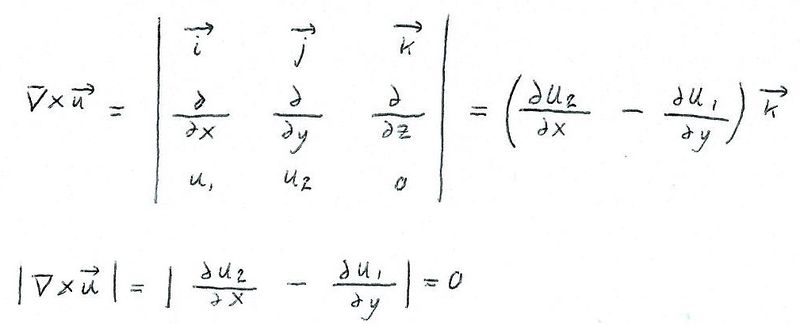 ∇×u⃗ = | i⃗ j⃗ k⃗ ; ∂/∂x ∂/∂y ∂/∂z ; u₁ u₂ 0 | = (∂u₂/∂x − ∂u₁/∂y) k⃗
|∇×u⃗| = | ∂u₂/∂x − ∂u₁/∂y | = 0